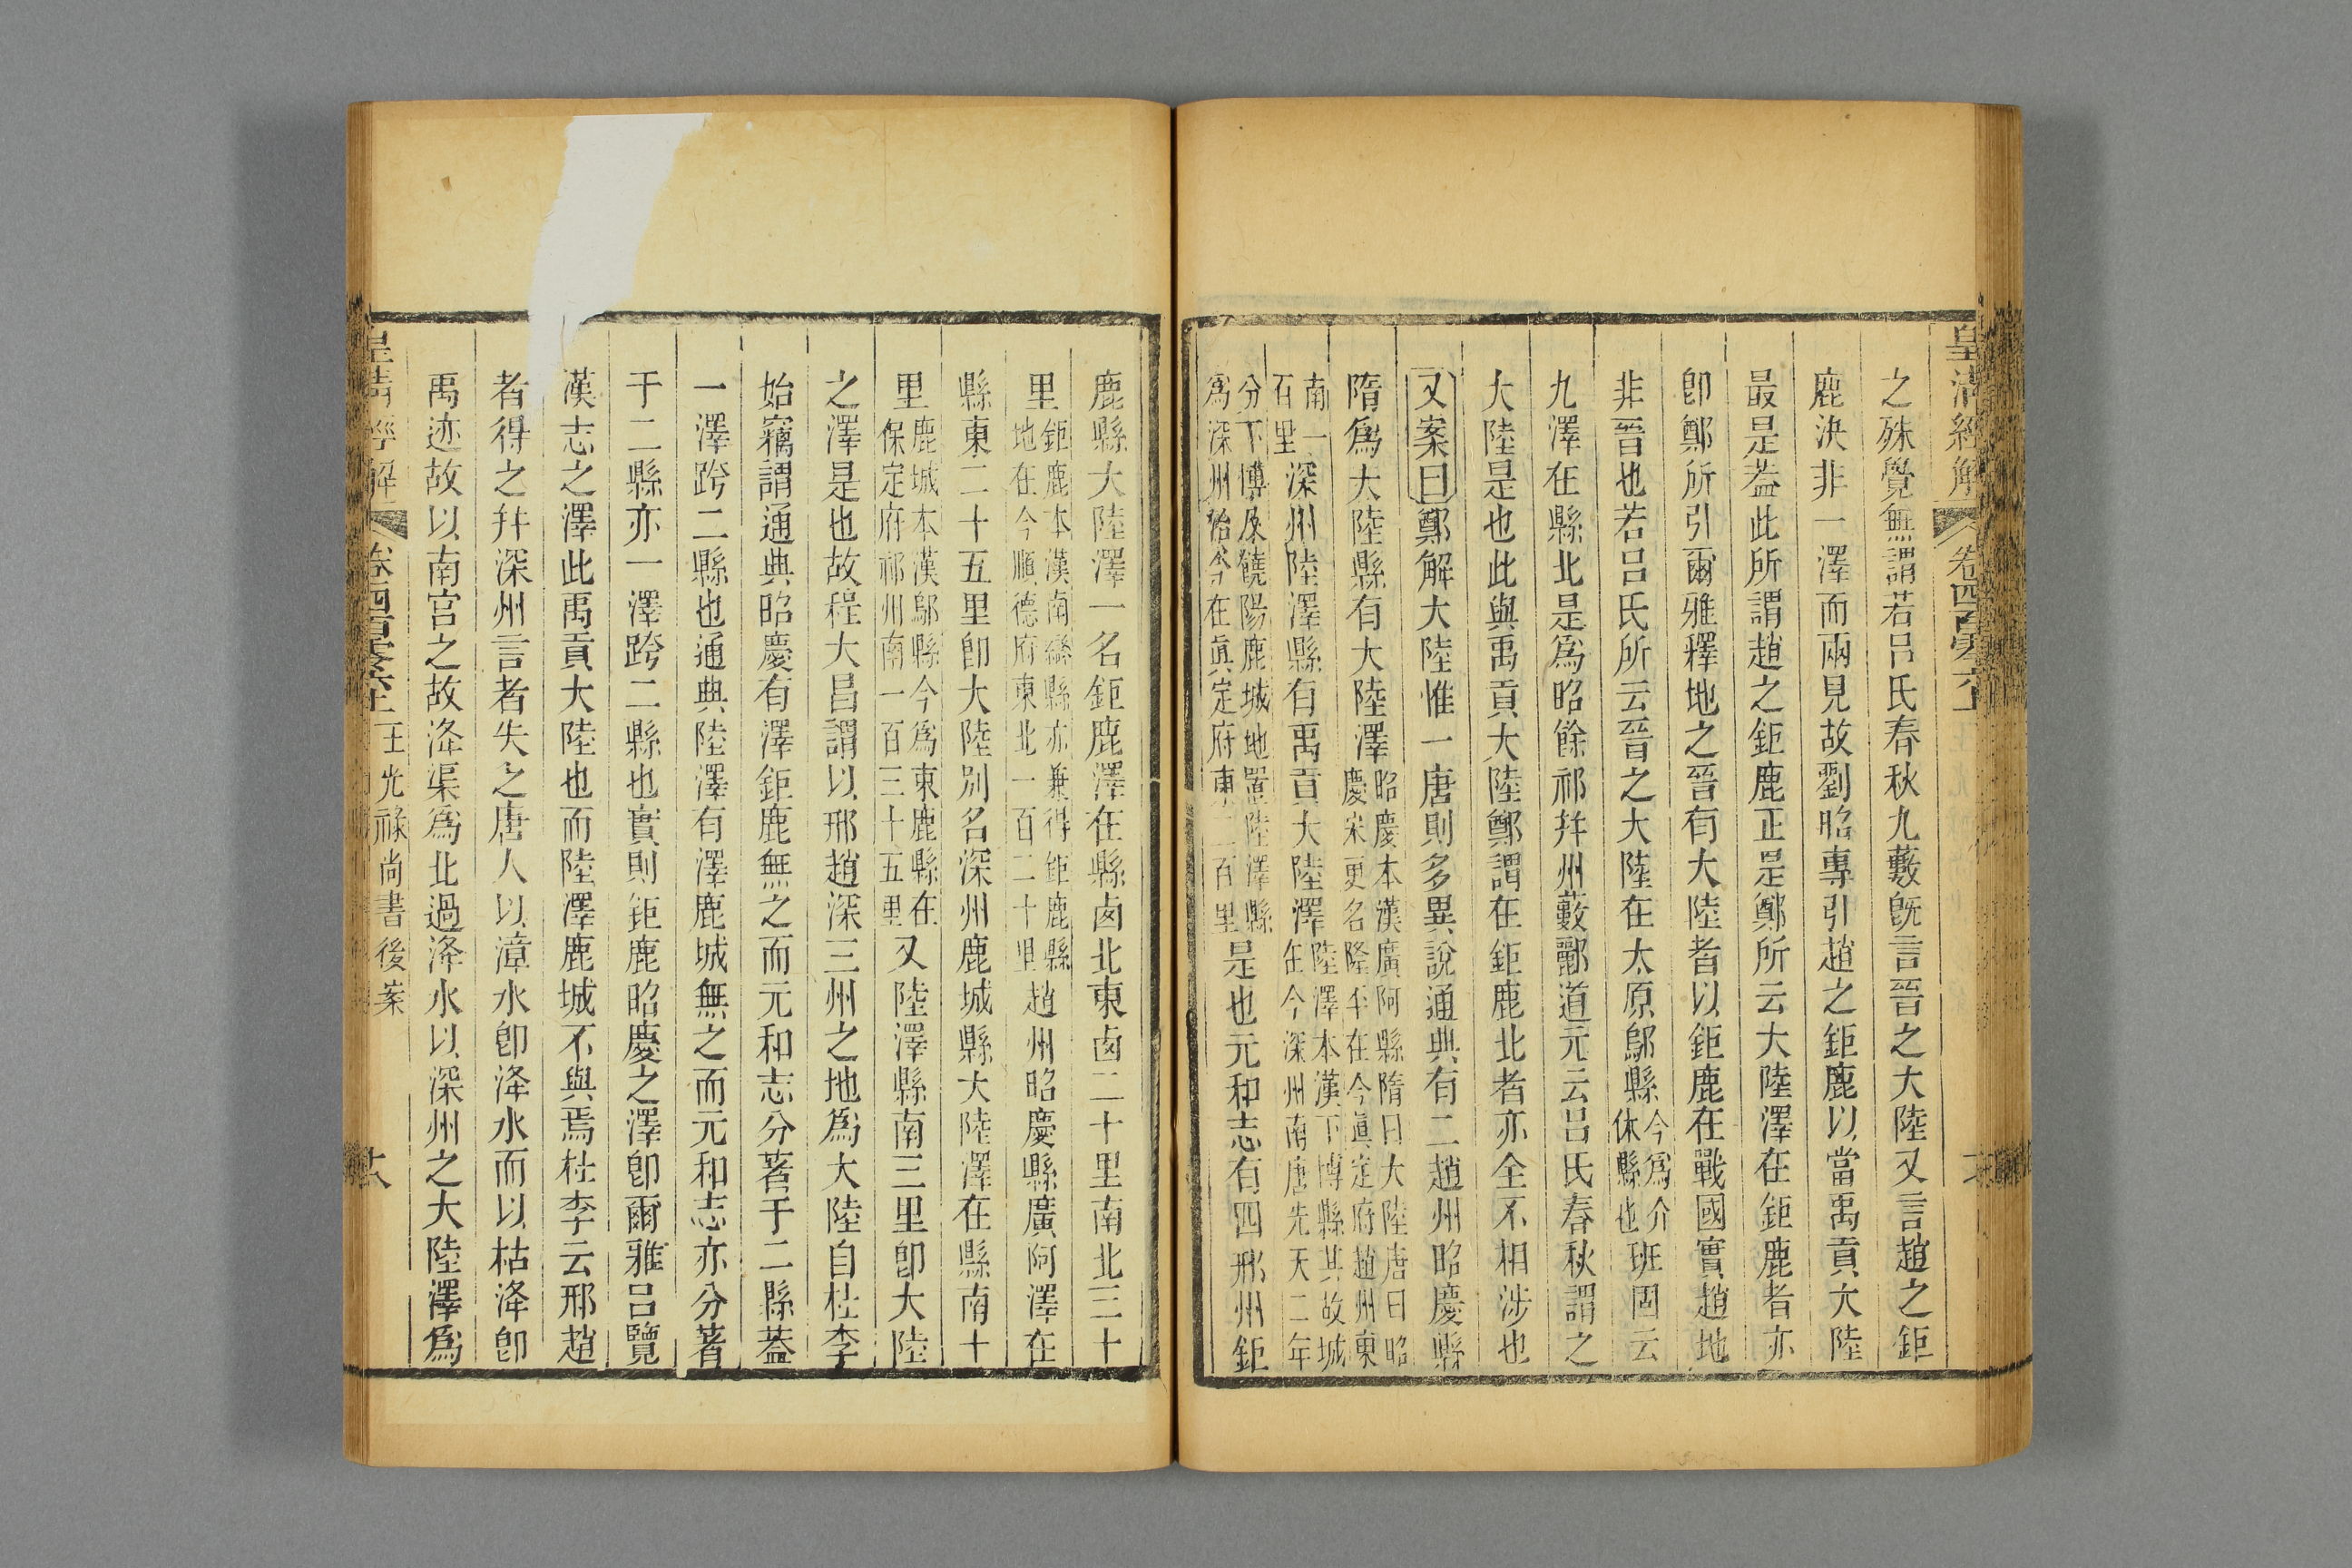 皇清經解 卷四百零六上
之殊覺無謂若呂氏春秋九藪旣言晉之大陸又言趙之鉅
鹿決非一澤而兩見故劉昭專引趙之鉅鹿以當禹貢大陸
最是葢此所謂趙之鉅鹿正是鄭所云大陸澤在鉅鹿者亦
卽鄭所引爾雅釋地之晉有大陸者以鉅鹿在戰國實趙地
非晉也若呂氏所云晉之大陸在太原鄔縣今爲介休縣也班固云
九澤在縣北是爲昭餘祁幷州藪酈道元云呂氏春秋謂之
大陸是也此與禹貢大陸鄭謂在鉅鹿北者亦全不相涉也
又案曰鄭解大陸惟一唐則多異說通典有二趙州昭慶縣
隋爲大陸縣有大陸澤昭慶本漢廣阿縣隋曰大陸唐曰昭慶宋更名隆平在今眞定府趙州東
南一百里深州陸澤縣有禹貢大陸澤陸澤本漢下博縣其故城在今深州南唐先天二年
分下博及饒陽鹿城地置陸澤縣爲深州治今在眞定府東二百里是也元和志有四邢州鉅
鹿縣大陸澤一名鉅鹿澤在縣卤北東卤二十里南北三十
里鉅鹿本漢南䜌縣亦兼得鉅鹿縣地在今順德府東北一百二十里趙州昭慶縣廣阿澤在
縣東二十五里卽大陸別名深州鹿城縣大陸澤在縣南十
里鹿城本漢鄔縣今爲東鹿縣在保定府祁州南一百三十五里又陸澤縣南三里卽大陸
之澤是也故程大昌謂以邢趙深三州之地爲大陸自杜李
始竊謂通典昭慶有澤鉅鹿無之而元和志分著于二縣葢
一澤跨二縣也通典陸澤有澤鹿城無之而元和志亦分著
于二縣亦一澤跨二縣也實則鉅鹿昭慶之澤卽爾雅呂覽
漢志之澤此禹貢大陸也而陸澤鹿城不與焉杜李云邢趙
者得之幷深州言者失之唐人以漳水卽洚水而以枯洚卽
禹迹故以南宮之故洚渠爲北過洚水以深州之大陸澤爲
皇清經解 卷四百零六上 王光祿尚書後案 六